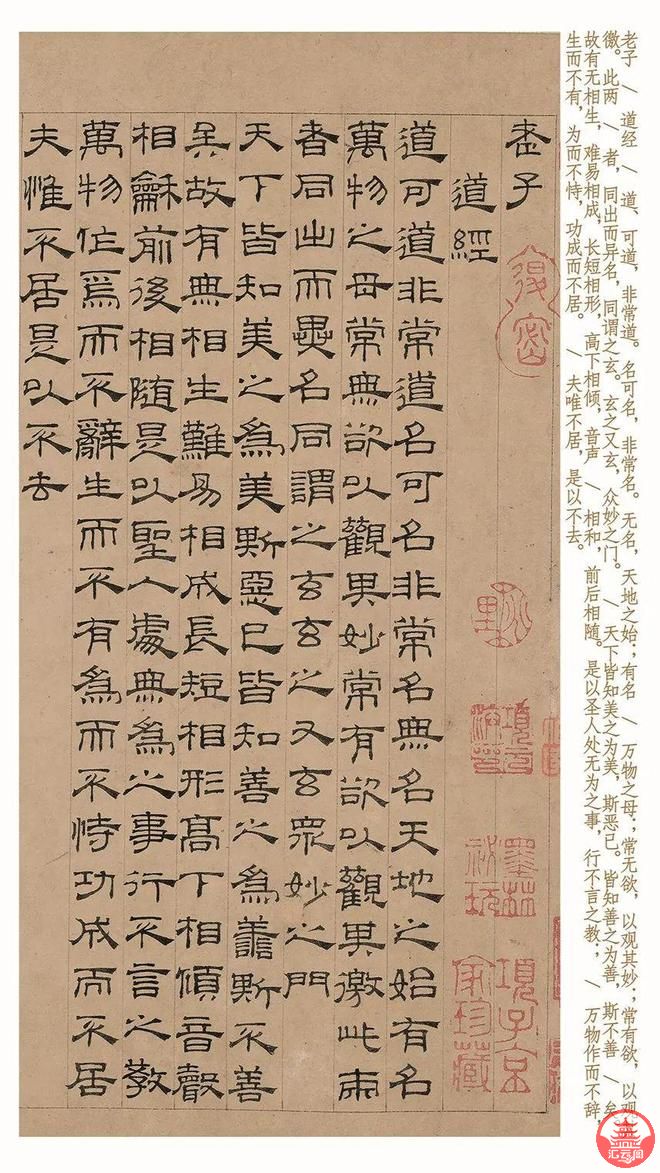 老子 \ 道经 \ 道，可道，非常道。名可名，非常名。无名，天地之始；有名 \ 万物之母；常无欲，以观其妙；常有欲，以观
徼。此两 \ 者，同出而异名，同谓之玄。玄之又玄，众妙之门。 \ 天下皆知美之为美，斯恶已。皆知善之为善，斯不善 \ 矣
故有无相生，难易相成，长短相形，高下相倾，音声 \ 相和，前后相随。是以圣人处无为之事，行不言之教； \ 万物作而不辞，
生而不有，为而不恃，功成而不居。 \ 夫唯不居，是以不去。
老子
道經
道可道非常道名可名非常名無名天地之始有名
萬物之母常無欲以觀其妙常有欲以觀其徼此兩
者同出而異名同謂之玄玄之又玄眾妙之門
天下皆知美之為美斯惡已皆知善之為善斯不善
矣故有無相生難易相成長短相形高下相傾音聲
相龢前後相隨是以聖人處無為之事行不言之教
萬物作焉而不辭生而不有為而不恃功成而不居
夫惟不居是以不去
墨林祕玩
項子京家珍藏
汇云阁